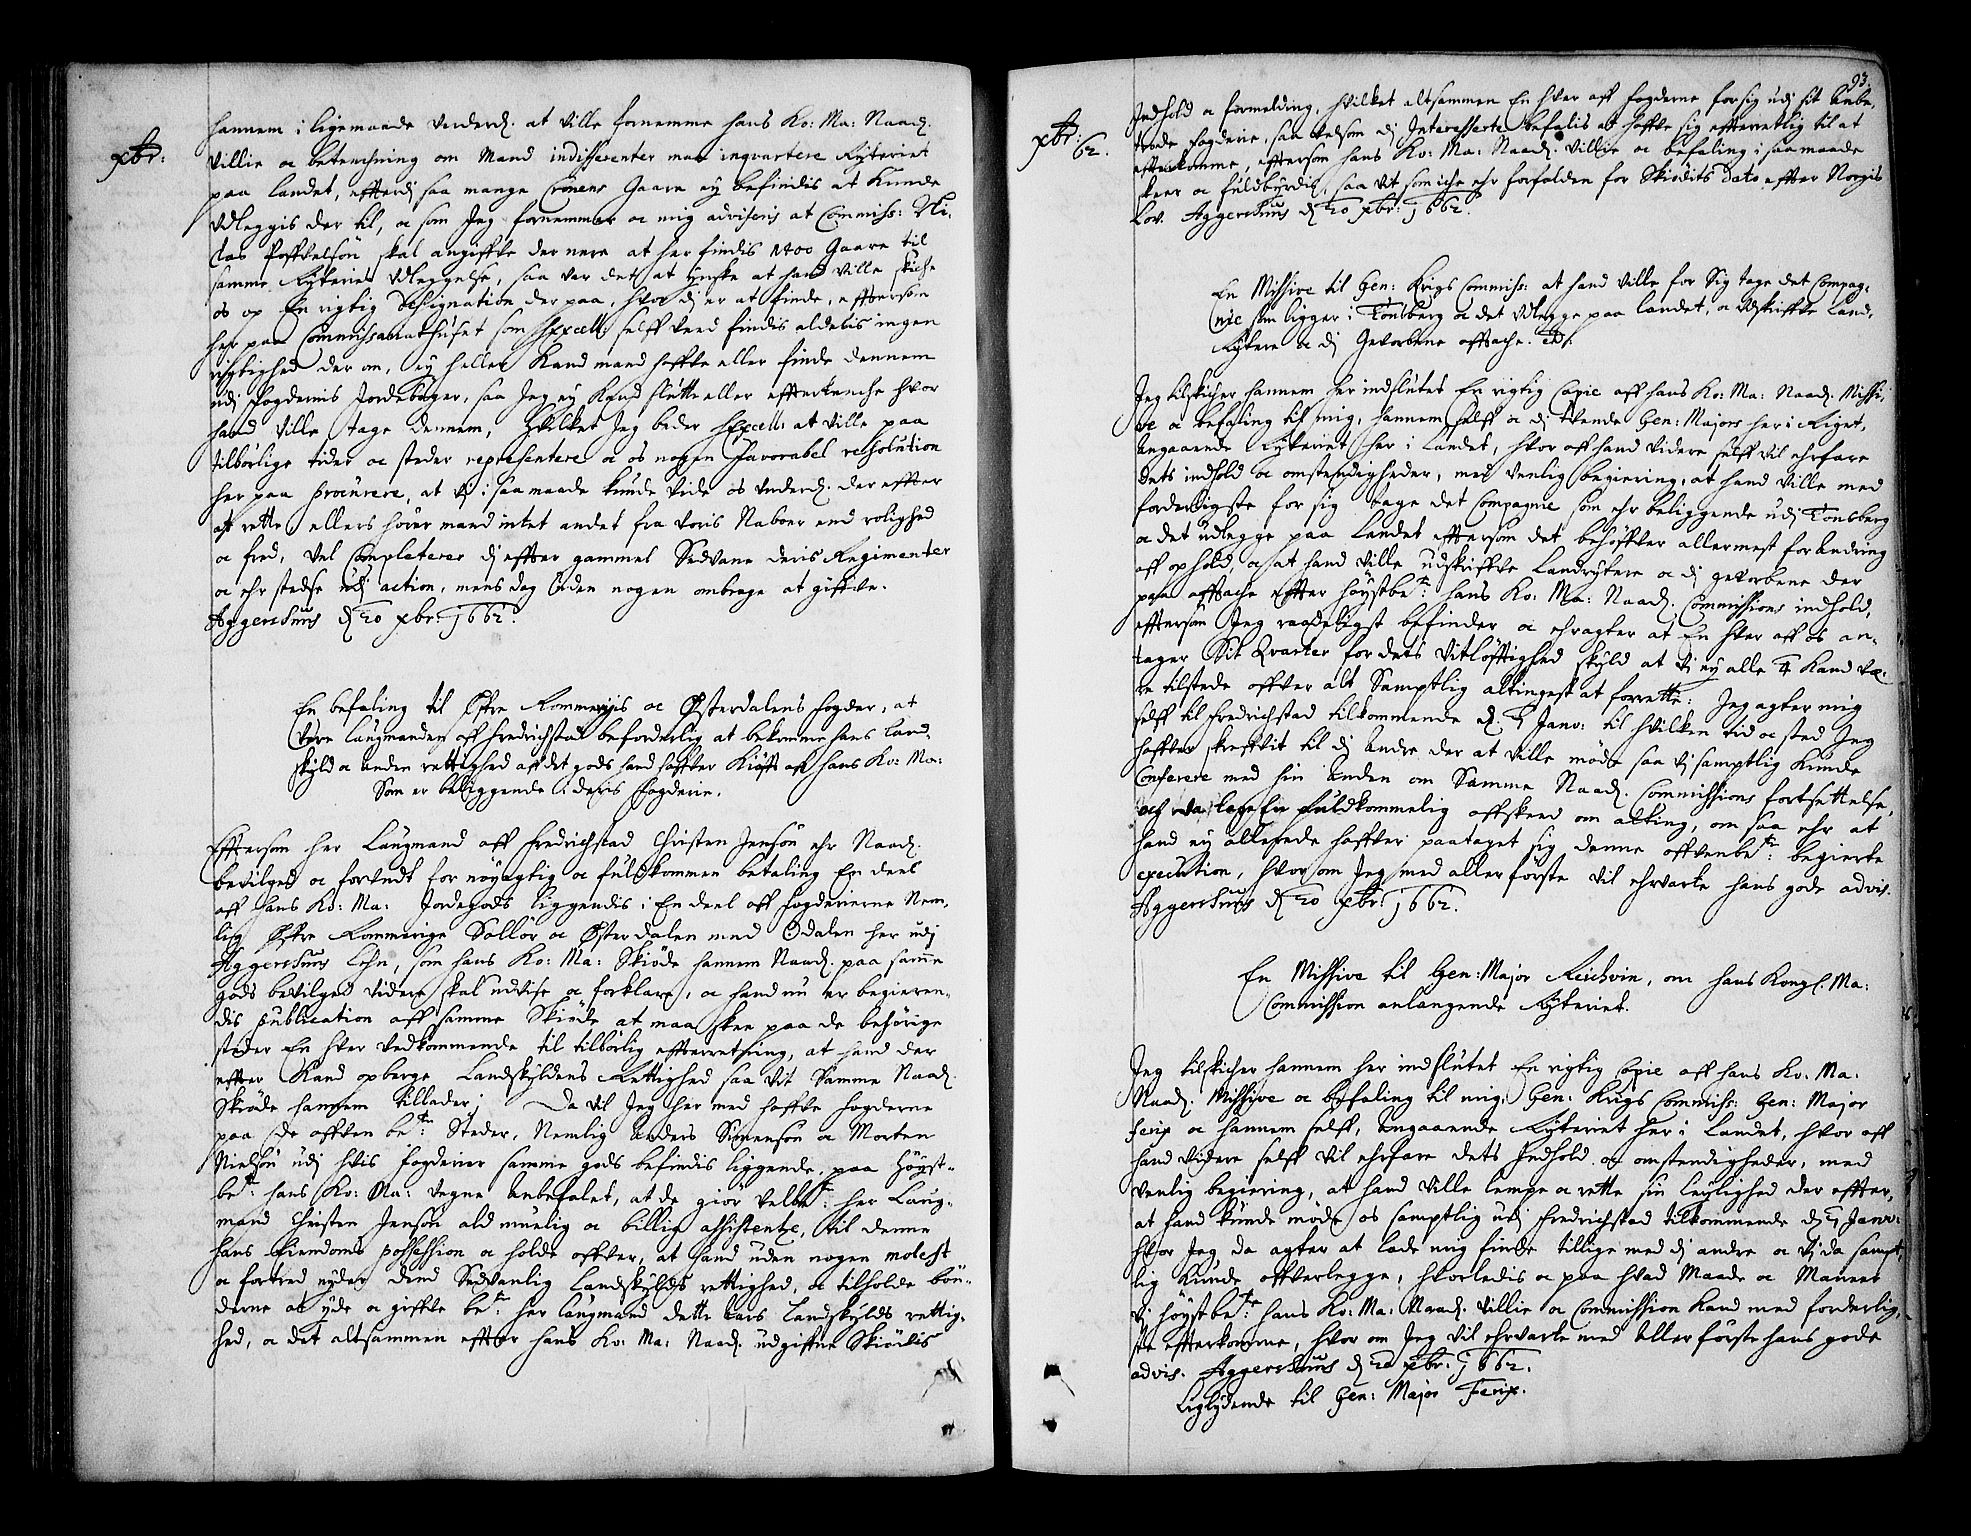 xbr:
hannem i ligemaade underd. at ville fornemme hans Ko: Ma: Naad.
villie oc betenchning om Mand indifferenter maa inqvartere Rÿteriet
paa landet, efftterdj saa mange Cronens Gaare ey befindis at Kunde
Udleggis der til, oc som Jeg fornemmer oc mig adviseris at Commiss: Ni-
clas Poffvelsøn skal angiffve der nere at her findis 1400 Gaare til
samme Rÿteries Udleggelse, saa var det at ynske at hand ville skiche
os op En rigtig Designation der paa, hvor dj er at finde, efftersom
her paa Commissariathuset som Excell: selff veed findis aldelis ingen
rigtighed der om, ey heller Kand mand haffve eller finde dennem
udj Fogdernis Jordebøger, saa Jeg ey Kand slutte eller effterkenche hvor
hand ville tage dennem, Hvilket Jeg beder Hs Excell: at ville paa
tilbørlige tider oc steder repræsentere oc os nogen Favorabel resolution
her paa procurere, at Vj i saa maade kunde vide os underd. der effter
at rette ellers hører mand intet andet fra voris Naboer end rolighed
oc fred, vel Completerer dj effter gammel Sedvane deris Regimenter
oc ehr stedse udj action, mens dog Uden nogen ombrage at giffve.
Aggershuus d. 20 xbr: 1662.
En befaling til Øfre Rommerigis oc Østerdalens fogder, at
vere laugmanden off Fredrichstad beforderlig at bekomme hans land-
skyld oc anden rettighed aff det gods hand haffver Kiøfft aff hans Ko: Ma:
Som er beliggende i deris fogderie.
Efftersom her Laugmand aff Fredrichstad Christen Jensøn ehr Naad.
bevilged oc forundt for nøyagtig oc fuldkommen betaling En deel
aff hans Ko: Ma: Jordegods liggendis i En deel aff fogderierne Nem-
lig Øfre Rommerige Solløer oc Østerdalen med Odalen her udj
Aggershuus Lehn, som hans Ko: Ma: Skiøde hannem Naad. paa samme
gods bevilged videre skal udvise oc forklare, oc hand nu er begieren-
dis publication aff samme Skiøde at maa skee paa de behørige
steder En hver vedkommende til tilbørlig effterretning, at hand der
effter Kand opberge Landskyldens Rettighed saa vit Samme Naad.
Skiøde hannem tillader; Da vil Jeg her med haffve fogderne
paa de offven be.te: Steder, Nemlig Anders Simensøn oc Morten
Nielsøn udj hvis fogderier samme gods befindis liggende, paa Høyst-
be.te: hans Ko: Ma: vegne anbefalet, at de giør velbe.te: her Laug-
mand Christen Jensøn ald muelig oc billig assistentze, til denne
hans Eiendoms possession oc holde offver, at hand uden nogen molest
oc fortred nyder dend Sedvenlig Landskylds rettighed, oc tilholde bøn-
derne at yde oc giffve be.te: her laugmand dette aars Landskylds rettig-
hed, oc det altsammen effter hans Ko: Ma: Naad. udgiffne Skiødis
93.
xbr: 62.
Indhold oc formelding, hvilket altsammen En hver aff fogderne for sig udj sit Anbe-
troede fogderie, saa velsom dj Interesserte befalis at haffve sig effterretlig til at
effterkomme, effter som hans Ko: Ma: Naad. villie oc befaling i saa maade
skeer oc fuldbyrdis, saa vit som iche ehr forfalden for Skiødits Dato effter Norgis
Lov. Aggershuus d. 20 xbr: 1662.
En Missive til Gen: Krigs Commiss: at hand ville for Sig tage det Compag-
nie som ligger i Tønsberg oc det Udlegge paa landet, oc Udskriffve Land-
Rytere oc dj Gevorbene affdache. etc.
Jeg tilskicher hannem her indslutet En rigtig Copie aff hans Ko: Ma: Naad. Missi-
ve oc befaling til mig, hannem selff oc dj tvende Gen: Majors her i Riget,
Angaaende Rÿteriet her i Landet, hvor aff hand videre selff vil ehrfare
dets indhold oc omstendigheder, med venlig begiering, at hand ville med
forderligste for sig tage det Compagnie som ehr beliggende udj Tønsberg
oc det udlegge paa Landet effter som det behøffver allermest forandring
aff ophold, oc at hand ville udskriffve Landrÿtere oc dj gevorbene der
paa affdache effter høystbe.te: hans Ko: Ma: Naad. Commissions indhold,
efftersom Jeg raadeligst befinder oc ehragter at En hver aff os an-
tager Sit Qvarter for dets Vitløfftighed skyld at Vj ey alle 4 Kand væ-
re tilstede offver alt Samptlig altingest at forrette: Jeg agter mig
selff til Fredrichstad tilkommende d. 7 Janv: til hvilken tid oc sted Jeg
haffver skreffvit til dj Andre der at ville møde saa Vj samptlig Kunde
Conferere med hin anden om Samme Naad. Commissions fortsettelse,
och da tage En fuldkommelig affskeed om alting, om saa ehr at
hand ey allerede haffver paataget sig denne offvenbe.te: begierte
execution, hvor om Jeg med aller første vil ehrvarte hans gode advis.
Aggershuus d. 20 xbr: 1662.
En Missive til Gen: Major Reichwin, om hans Kongl. Ma:
Commission anlangende Rÿteriet.
Jeg tilskicher hannem her indslutet En rigtig Copie aff hans Ko: Ma:
Naad. Missive oc befaling til mig, Gen: Krigs Commiss: Gen: Major
Ferix oc hannem selff, Angaaende Rÿteriet her i Landet, hvor aff
hand videre selff vil ehrfare dets Indhold og omstendigheder, med
venlig begiering, at hand ville lempe oc rette sin leylighed der effter,
at hand Kunde møde os samptlig udj Fredrichstad tilkommende d. 7 Janv:
hvor Jeg da agter at lade mig finde tillige med dj andre oc Vj da sampt-
lig Kunde offverlegge, hvorledis oc paa hvad Maade oc Maneer
Vj høystbe.te: hans Ko: Ma: Naad. villie oc Commission Kand med forderlig-
ste effterkomme, hvor om Jeg vil ehrvarte med Allerførste hans gode
advis. Aggershuus d. 20 xbr: 1662.
Liglydende til Gen: Major Ferix.